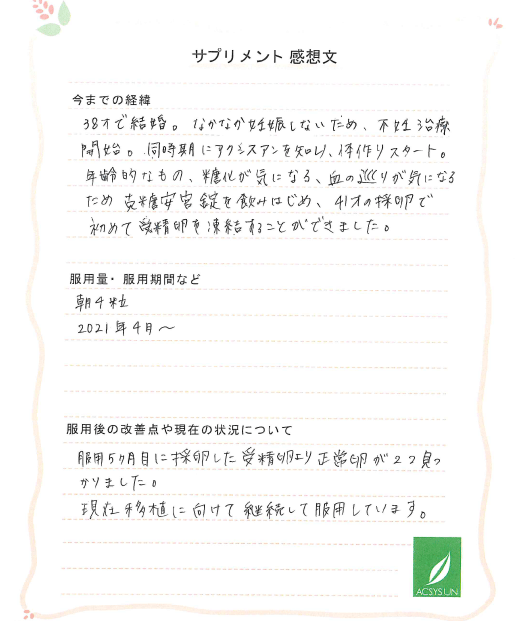 サプリメント 感想文
今までの経緯
38才で結婚。なかなか妊娠しないため、不妊治療
開始。同時期にアクシスアンを知り、体作りスタート。
年齢的なもの、糖化が気になる、血の巡りが気になる
ため 克糖安宮錠を飲みはじめ、41才の採卵で
初めて受精卵を凍結することができました。
服用量・服用期間など
朝4粒
2021年4月～
服用後の改善点や現在の状況について
服用5ヶ月目に採卵した受精卵より正常卵が2つ見つ
かりました。
現在移植に向けて継続して服用しています。
ACSYSUN